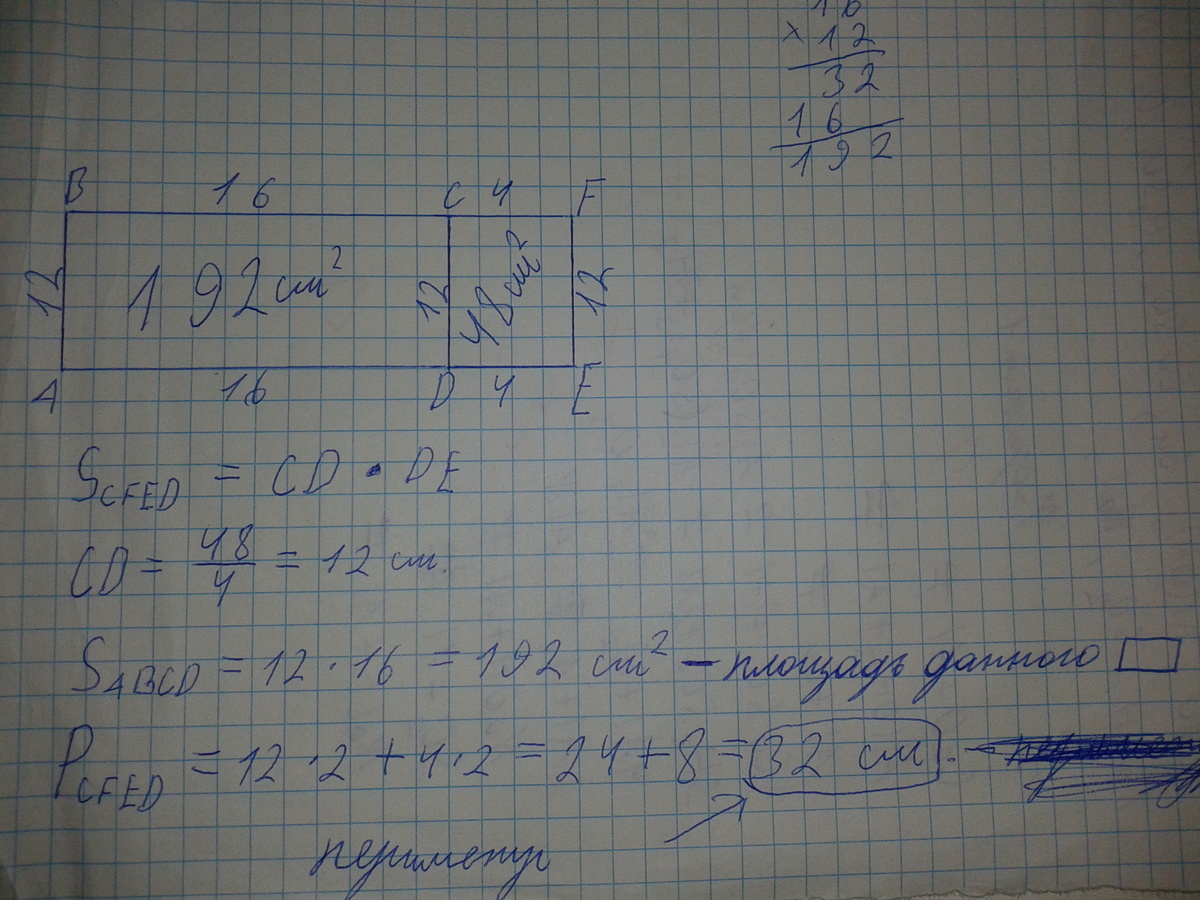 16
× 12
32
16
192
B 16 C 4 F
12 192 см² 12 48 см² 12
A 16 D 4 E
S_CFED = CD · DE
CD = 48/4 = 12 см.
S_ABCD = 12 · 16 = 192 см² – площадь данного ▭
P_CFED = 12 · 2 + 4 · 2 = 24 + 8 = 32 см. –
периметр